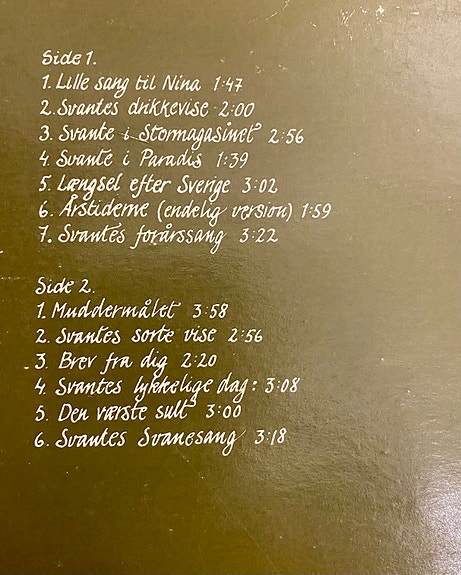 Side 1.
1. Lille sang til Nina 1:47
2. Svantes drikkevise 2:00
3. Svante i Stormagasinet 2:56
4. Svante i Paradis 1:39
5. Længsel efter Sverige 3:02
6. Årstiderne (endelig version) 1:59
7. Svantes forårssang 3:22
Side 2.
1. Muddermålet 3:58
2. Svantes sorte vise 2:56
3. Brev fra dig 2:20
4. Svantes lykkelige dag: 3:08
5. Den værste sult 3:00
6. Svantes Svanesang 3:18